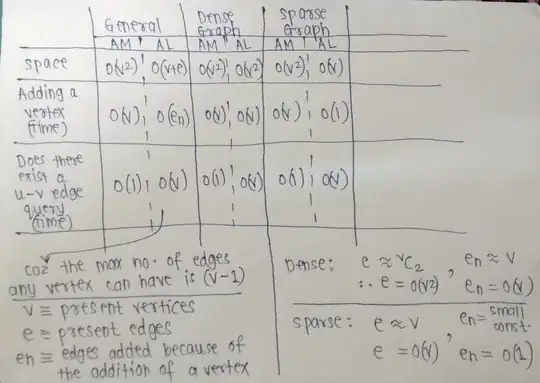 General Dense Graph Sparse Graph
AM AL AM AL AM AL
space O(v²) O(v+e) O(v²) O(v²) O(v²) O(v)
Adding a vertex (time) O(v) O(en) O(v) O(v) O(v) O(1)
Does there exist a u-v edge query (time) O(1) O(v) O(1) O(v) O(1) O(v)
coz the max no. of edges
any vertex can have is (v-1)
v ≡ present vertices
e ≡ present edges
en ≡ edges added because of
the addition of a vertex
Dense: e ≈ ᵛC₂ , en ≈ v
∴ e = O(v²) en = O(v)
sparse: e ≈ v , en = small const.
e = O(v) en = O(1)